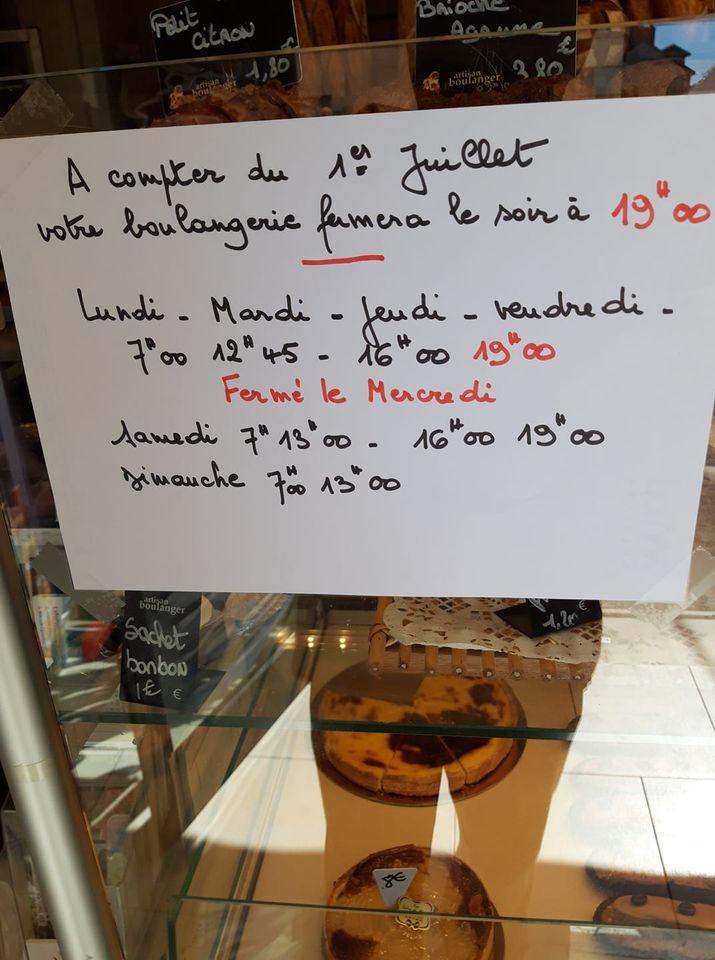 Petit
Citron
1,80 €
artisan
boulanger
Brioche
Agrume
€
3,80
artisan
boulanger
A compter du 1er Juillet
votre boulangerie fermera le soir à 19H00
Lundi - Mardi - Jeudi - vendredi -
7H00 12H45 - 16H00 19H00
Fermé le Mercredi
Samedi 7H 13H00 - 16H00 19H00
Dimanche 7H00 13H00
artisan
boulanger
Sachet
bonbon
1€ €
€
8€